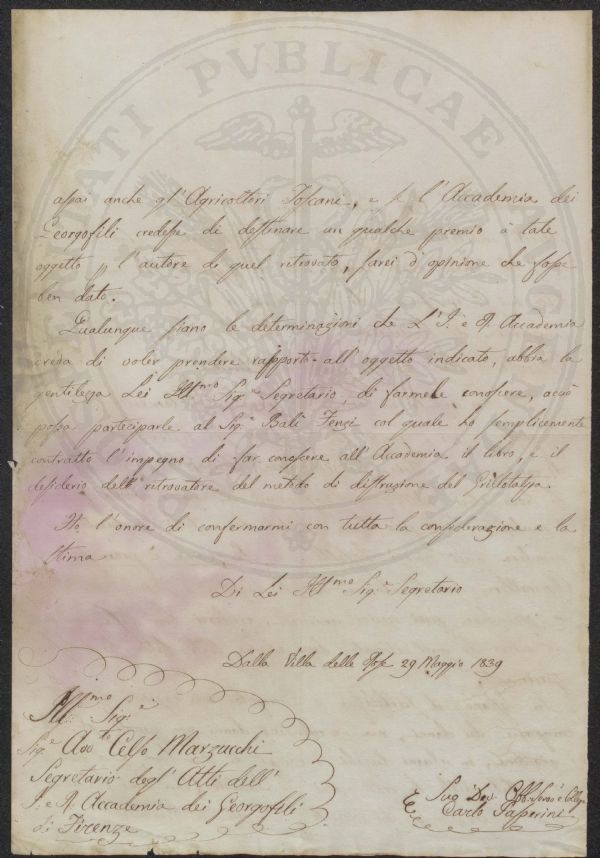 assai anche gl' Agricoltori Toscani, e se l'Accademia dei
Georgofili credesse di destinare un qualche premio à tale
oggetto p l'autore di quel ritrovato, sarei d'opinione che fosse
ben dato.
Qualunque siano le determinazioni che L'I. e R. Accademia
creda di voler prendere rapporto all'oggetto indicato, abbia la
gentilezza Lei Ill.mo Sig.e Segretario, di farmele conoscere, acciò
possa parteciparle al Sig.e Balì Fenzi col quale ho semplicemente
contratto l'impegno di far conoscere all'Accademia il libro, e il
desiderio dell'retrovatore del metodo di distruzione del
Ho l'onore di confermarmi con tutta la considerazione e la
stima
Di Lei Ill.mo Sig.e Segretario
Dalla Villa delle 29 Maggio 1839
Ill.mo Sig.e
Sig.e Avv.to Celso Marzucchi
Segretario degl'Atti dell'
I. e R. Accademia dei Georgofili
di Firenze
Suo Dev. Obb. Serv.e e Collega
Carlo
PVBLICAE